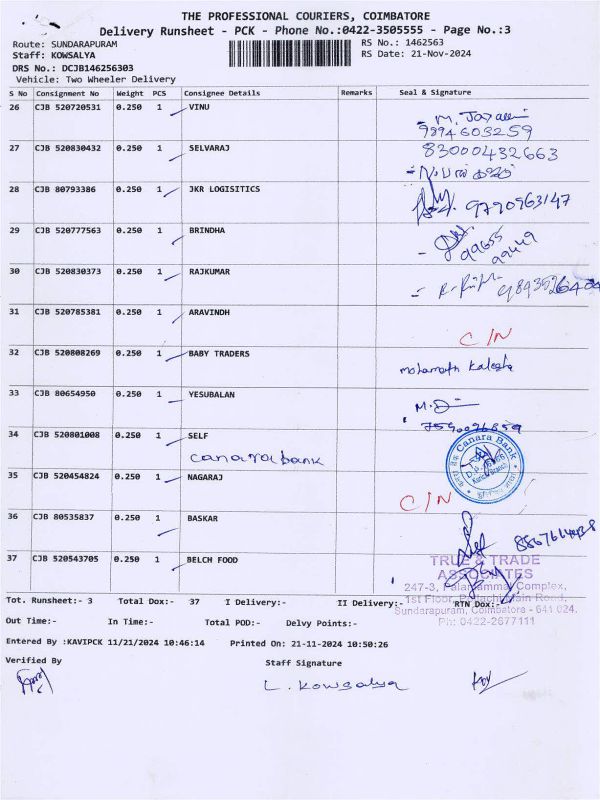 THE PROFESSIONAL COURIERS, COIMBATORE
Delivery Runsheet - PCK - Phone No.:0422-3505555 - Page No.:3
Route: SUNDARAPURAM
RS No.: 1462563
Staff: KOWSALYA
RS Date: 21-Nov-2024
DRS No.: DCJB146256303
Vehicle: Two Wheeler Delivery
S No Consignment No Weight PCS Consignee Details Remarks Seal & Signature
26 CJB 520720531 0.250 1 VINU
9894603259
27 CJB 520830432 0.250 1 SELVARAJ
83000432663
28 CJB 80793386 0.250 1 JKR LOGISITICS
9790963147
29 CJB 520777563 0.250 1 BRINDHA
99655
30 CJB 520830373 0.250 1 RAJKUMAR
31 CJB 520785381 0.250 1 ARAVINDH
C/N
32 CJB 520808269 0.250 1 BABY TRADERS
33 CJB 80654950 0.250 1 YESUBALAN
34 CJB 520801008 0.250 1 SELF
canara bank
Canara Bank
35 CJB 520454824 0.250 1 NAGARAJ
C/N
36 CJB 80535837 0.250 1 BASKAR
37 CJB 520543705 0.250 1 BELCH FOOD
TRUE TRADE
ASSOCIATES
247-3, Palaniammal Complex,
1st Floor, Pollachi Main Road,
Sundarapuram, Coimbatore - 641 024.
Ph: 0422-2677111
Tot. Runsheet:- 3 Total Dox:- 37 I Delivery:- II Delivery:- RTN Dox:-
Out Time:- In Time:- Total POD:- Delvy Points:-
Entered By :KAVIPCK 11/21/2024 10:46:14 Printed On: 21-11-2024 10:50:26
Verified By Staff Signature
L. Kowsalya